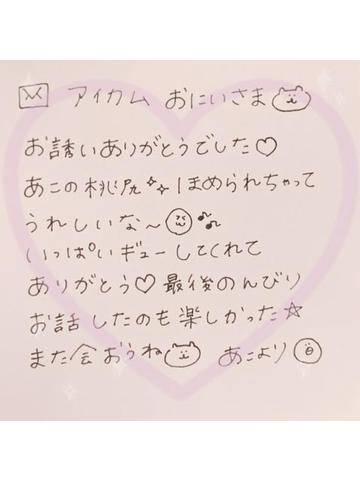 アイカム おにいさま
お誘いありがとうでした♡
あこの桃尻✨ほめられちゃって
うれしいな〜♫
いっぱいギューしてくれて
ありがとう♡最後のんびり
お話したのも楽しかった☆
また会おうね あこより